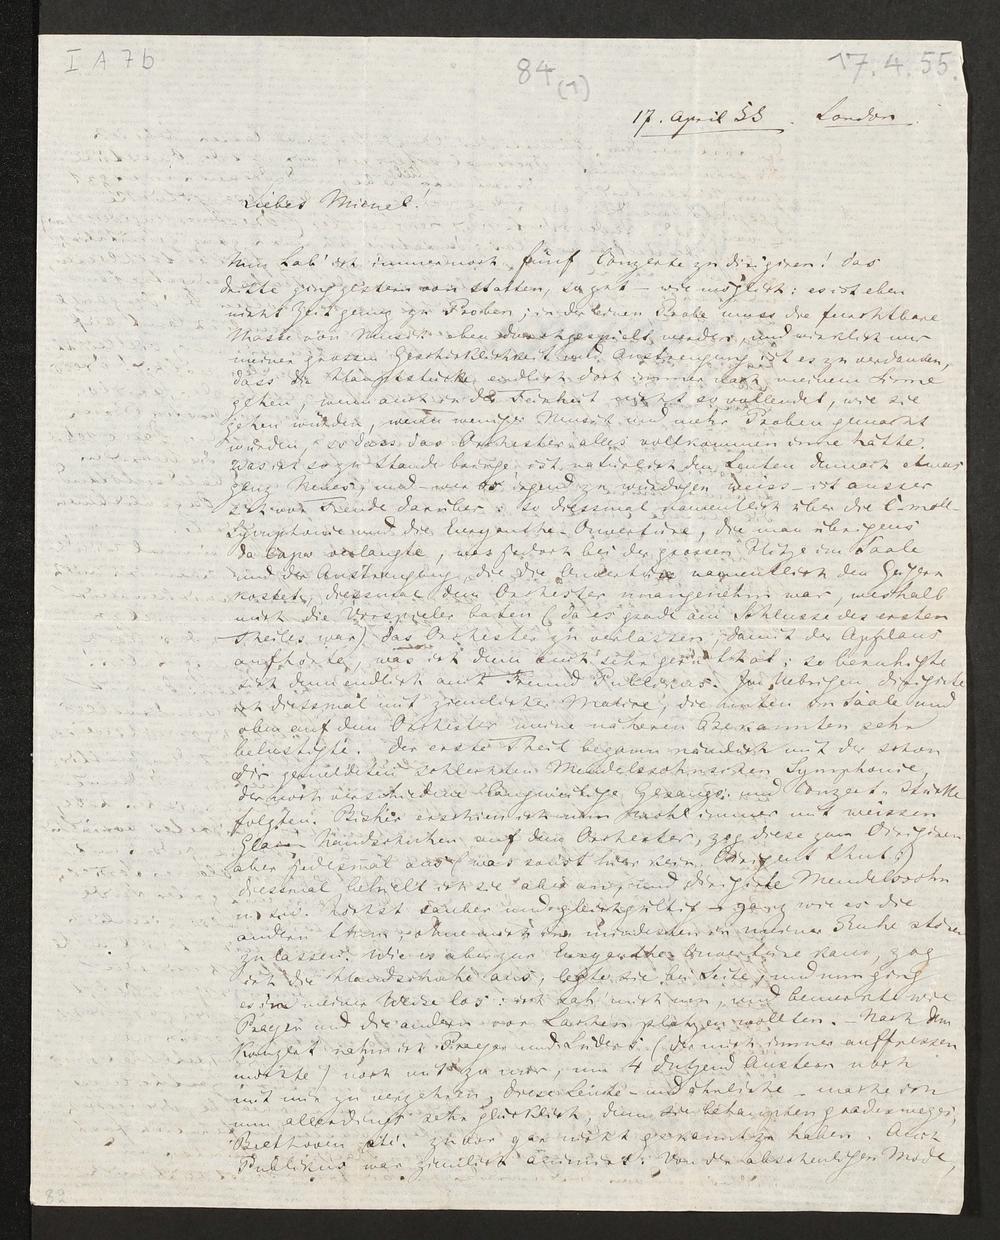 I A 7b
84 (1)
17. 4. 55.
17. April 55. London.
Liebes Mienel!
Nun hab' ich immer noch fünf Conzerte zu dirigiren! Das
dritte ging gestern von statten, so gut – wie möglich: es ist eben
nicht Zeit genug zu Proben; in der einen Probe muss die furchtbare
Masse von Musik eben durchgespielt werden, und wirklich nur
meiner grossen Geschicklichkeit und Anstrengung ist es zu verdanken,
dass die Hauptstücke endlich doch immer nach meinem Sinne
gehen, wenn auch in der Feinheit nicht so vollendet, wie sie
gehen würden, wenn weniger Musik und mehr Proben gemacht
würden, so dass das Orchester alles vollkommen inne hätte.
Was ich so zu Stande bringe, ist natürlich den Leuten dennoch etwas
ganz Neues, und – wer es irgend zu würdigen weiss – ist ausser
sich vor Freude darüber: so diessmal namentlich über die C-moll-
Symphonie und die Euryanthe-Ouvertüre, die man übrigens
da capo verlangte, was jedoch bei der grossen Hitze im Saale
und der Anstrengung, die die Ouvertüre namentlich den Geigern
kostet, diessmal dem Orchester unangenehm war, weshalb
mich die Vorspieler baten (da es grade am Schlusse des ersten
Theiles war) das Orchester zu verlassen, damit der Applaus
aufhörte, was ich denn auch sehr gern that; so beruhigte
sich denn endlich auch Freund Publikus. Im Uebrigen dirigirte
ich diessmal mit ziemlicher Malice, die unten im Saale und
oben auf dem Orchester meine näheren Bekannten sehr
belustigte. Der erste Theil begann nämlich mit der schon
Dir gemeldeten schlechten Mendelssohnschen Symphonie,
der noch verschiedene langweilige Gesangs- und Conzert-Stücke
folgten. Bisher erschien ich nun wohl immer mit weissen
Glacé Handschuhen auf dem Orchester, zog diese zum Dirigiren
aber jedesmal aus (was sonst hier kein Dirigent thut);
diessmal behielt ich sie aber an, und dirigirte Mendelssohn
u. s. w. höchst sauber und gleichgültig – ganz wie es die
andern thun, ohne mich im mindesten in meiner Ruhe stören
zu lassen. Wie es aber zur Euryanthe-Ouvertüre kam, zog
ich die Handschuhe aus, legte sie bei Seite, und nun ging
es in meiner Weise los: ich sah mich um, und bemerkte wie
Praeger und die andern vor Lachen platzen wollten. – Nach dem
Konzert nahm ich Praeger und Lüders (der mich immer auffressen
möchte) noch mit zu mir, um 4 Dutzend Austern noch
mit mir zu verzehren; diese Leute – und ähnliche – mache ich
nun allerdings sehr glücklich, denn sie behaupten gradesweges,
Beethoven etc. zuvor gar nicht gekannt zu haben. Auch
Publikus war ziemlich animirt: Von der abscheulichen Mode,
82